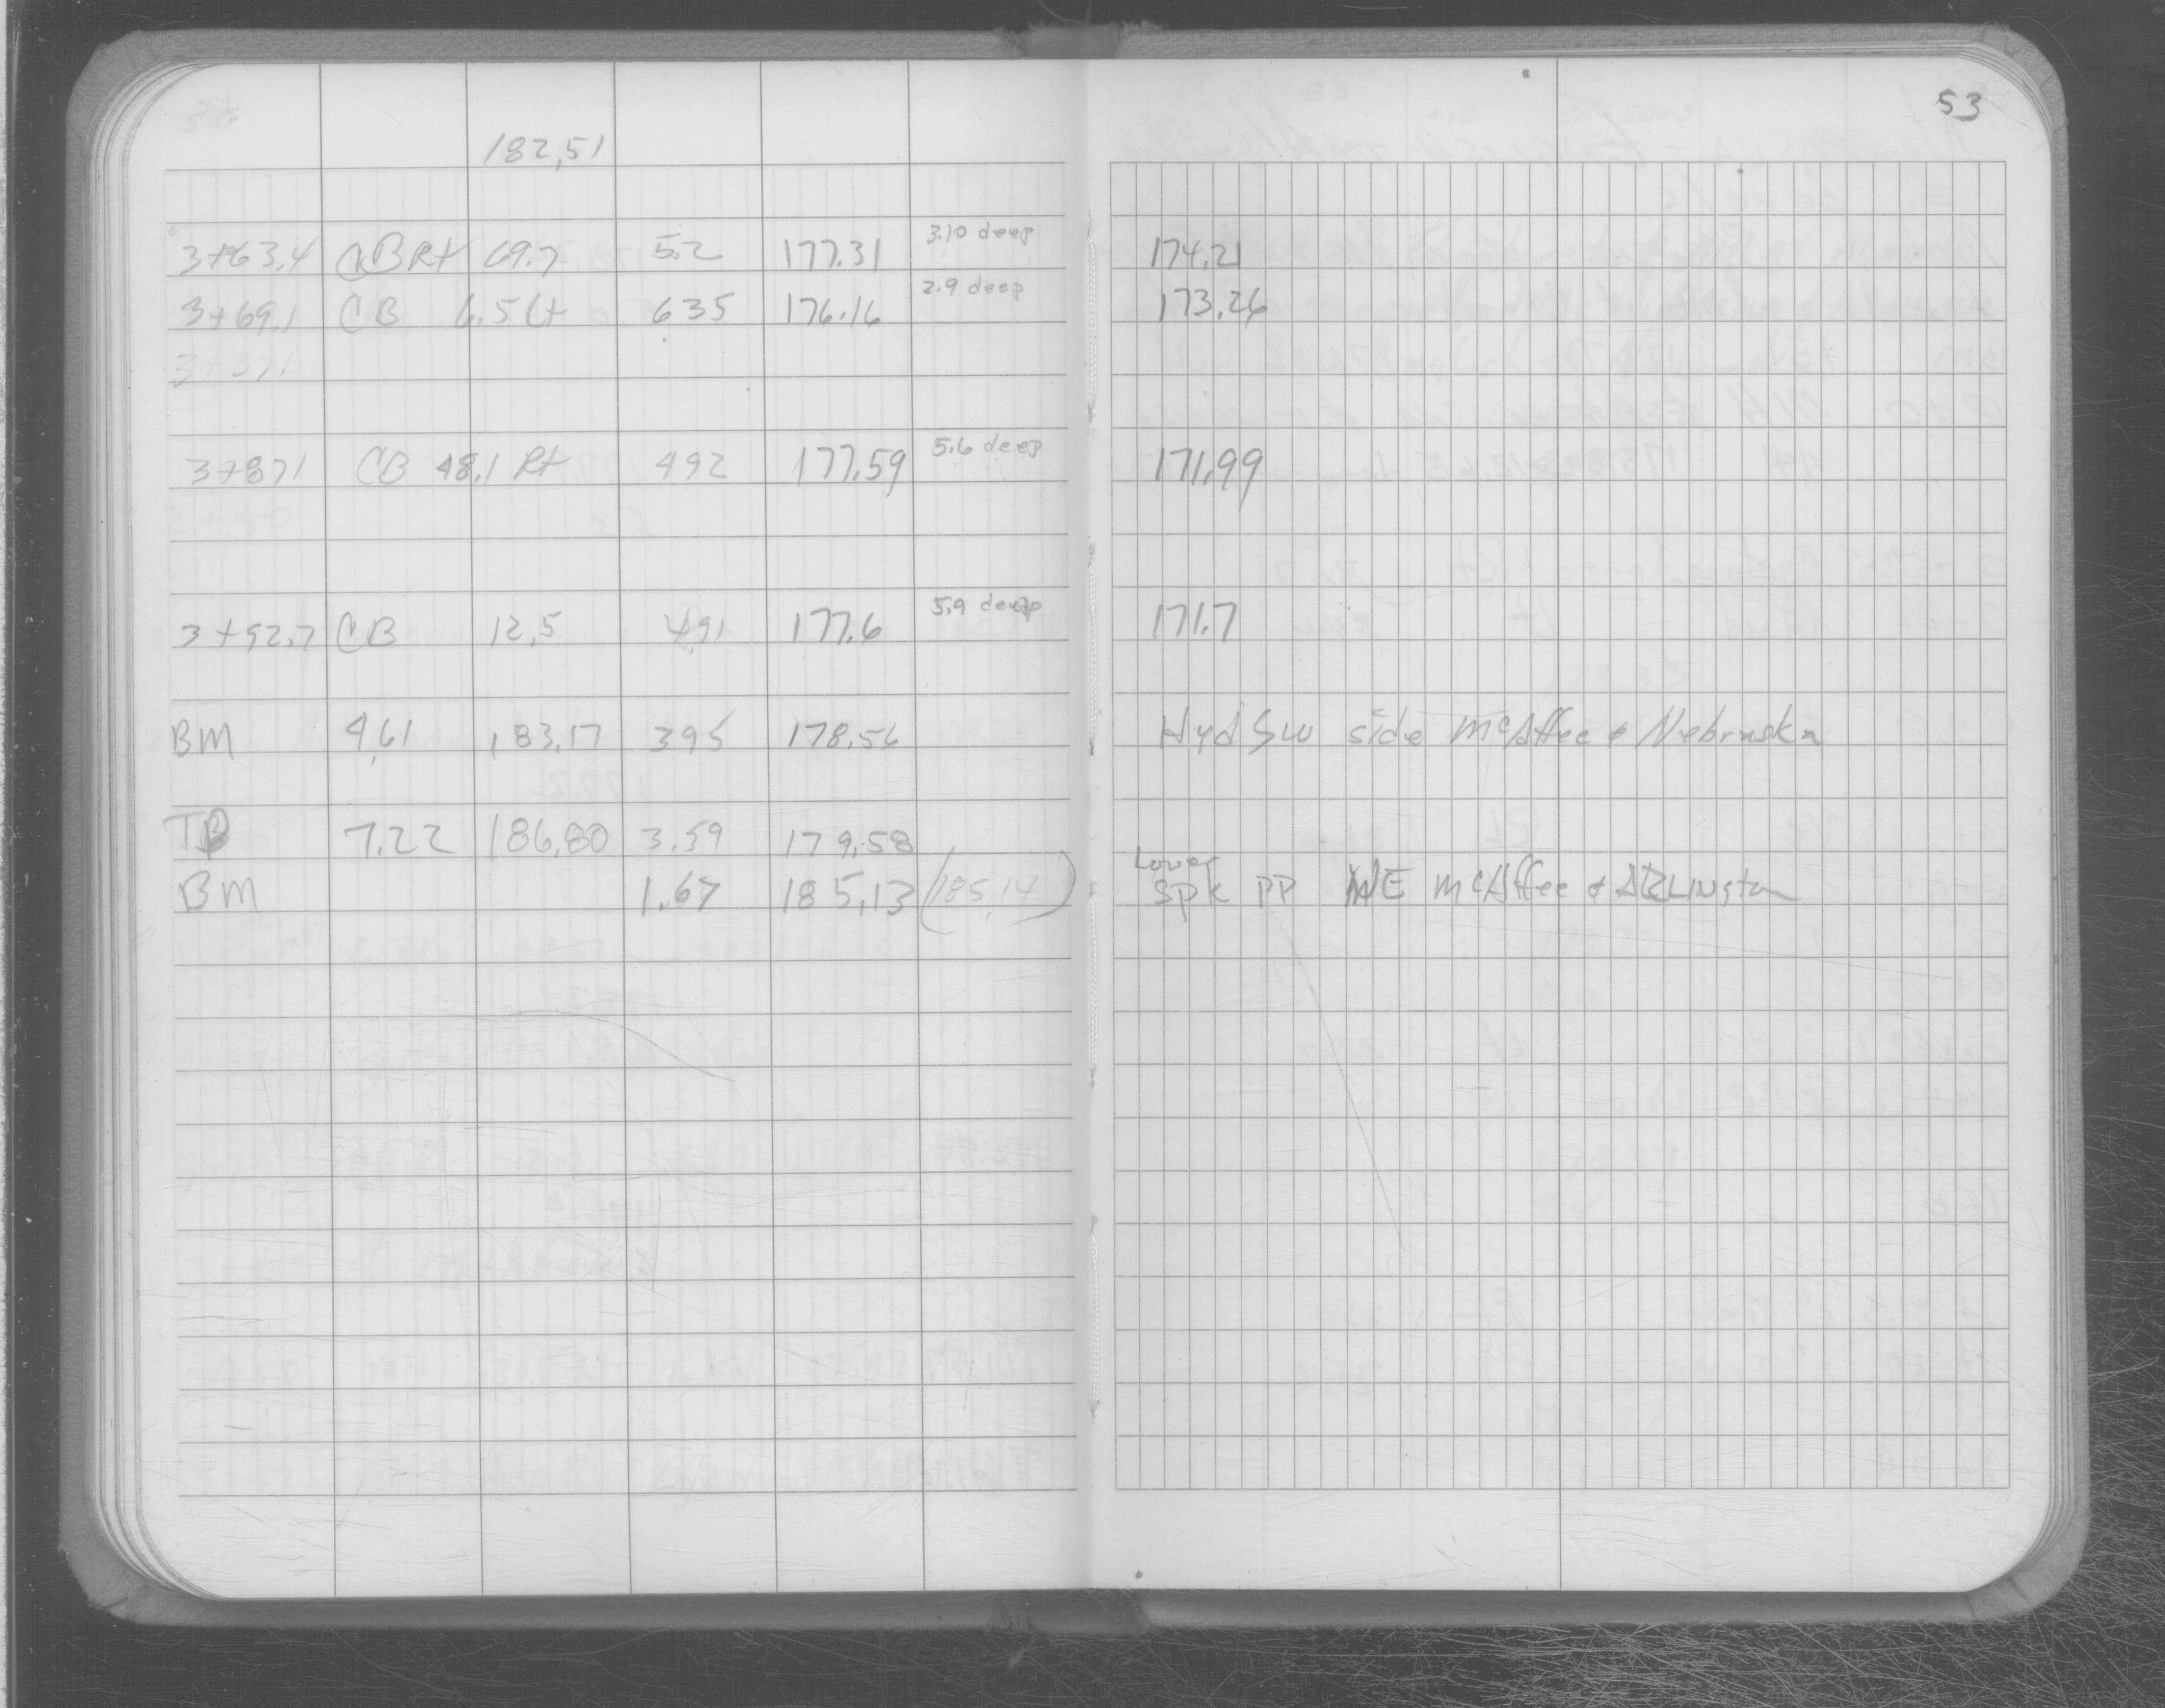 53
182,51
3+63.4 CB Rt 69.7 5.2 177.31 3.10 deep 174.21
3+69.1 CB 6.5 Lt 635 176.16 2.9 deep 173.26
3+871
3+871 CB 48.1 Rt 492 177.59 5.6 deep 171.99
3+92.7 CB 12.5 491 177.6 5.9 deep 171.7
BM 4.61 183.17 395 178.56 Hyd SW side McAffee & Nebraska
TP 7.22 186.80 3.59 179.58
BM 1.67 185.13 (185.14) Lower Spk PP NE McAffee & ARLINgton